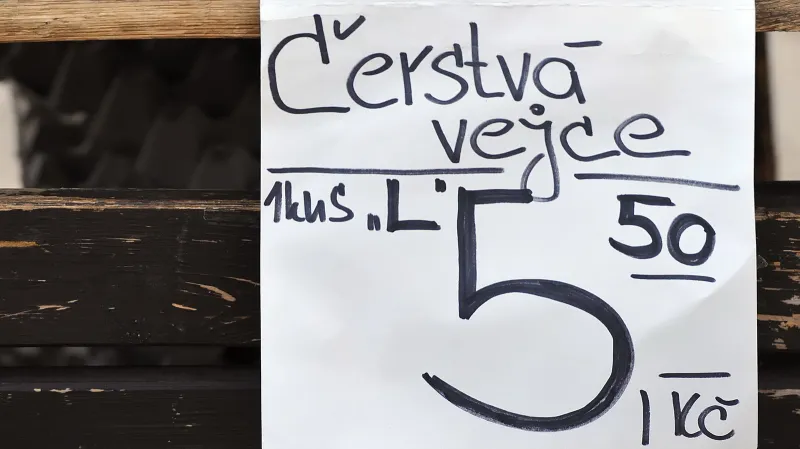 Čerstvá
vejce
1kus „L" 5 50
1 Kč